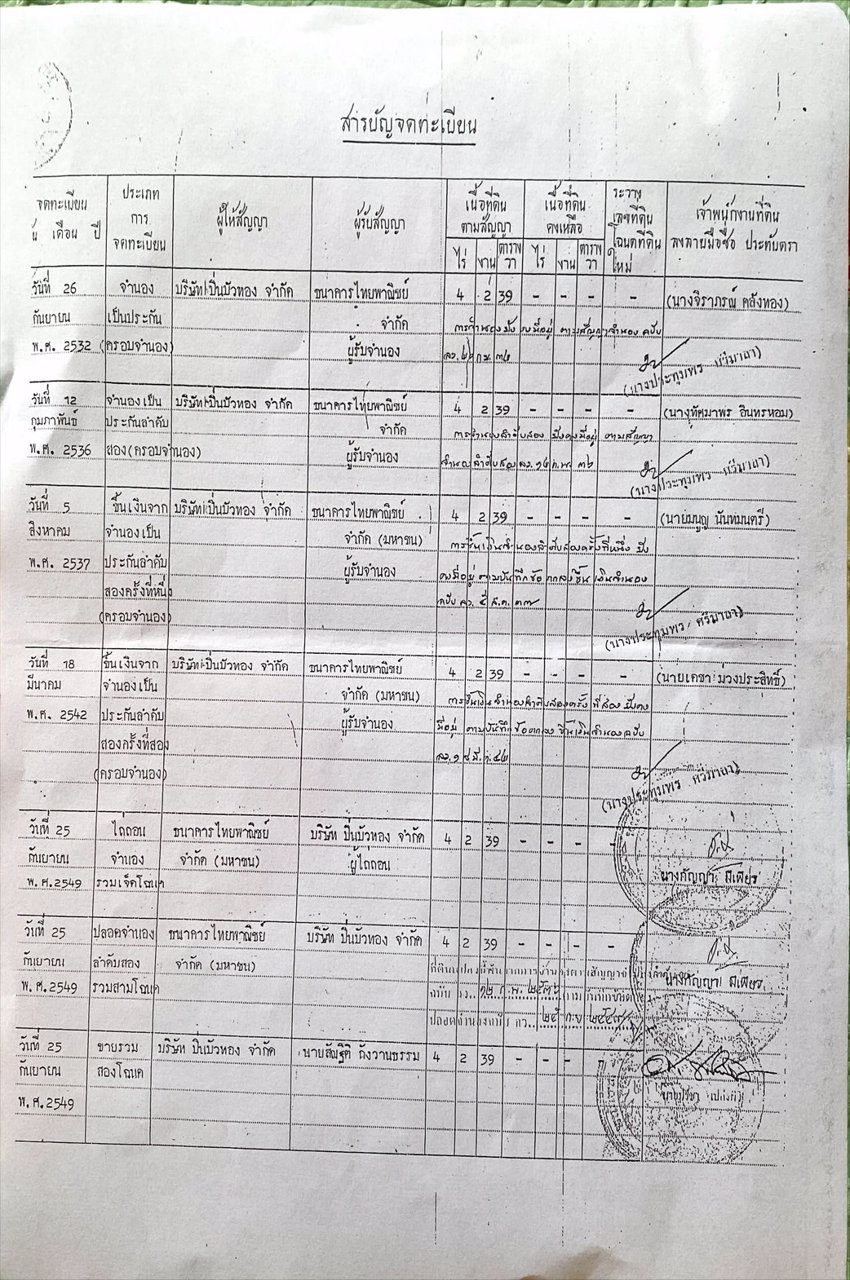 สารบัญจดทะเบียน
จดทะเบียน ประเภท ผู้ให้สัญญา ผู้รับสัญญา เนื้อที่ดิน เนื้อที่ดิน ระวาง เจ้าพนักงานที่ดิน
วัน เดือน ปี การ ตามสัญญา คงเหลือ เลขที่ดิน ลงลายมือชื่อ ประทับตรา
จดทะเบียน ไร่ งาน ตาราง วา ไร่ งาน ตาราง วา โฉนดที่ดิน ใหม่
วันที่ 26 จำนอง บริษัท ปิ่นบัวทอง จำกัด ธนาคารไทยพาณิชย์ 4 2 39 - - - - (นางจิราภรณ์ คลังทอง)
กันยายน เป็นประกัน จำกัด การจำนองยังคงมีอยู่ ตามสัญญาจำนอง ฉบับ
พ.ศ. 2532 (ครอบจำนอง) ผู้รับจำนอง
วันที่ 12 จำนองเป็น บริษัท ปิ่นบัวทอง จำกัด ธนาคารไทยพาณิชย์ 4 2 39 - - - -
กุมภาพันธ์ ประกันลำดับ จำกัด การจำนองลำดับสอง ยังคงมีอยู่ ตามสัญญา
พ.ศ. 2536 สอง(ครอบจำนอง) ผู้รับจำนอง จำนองลำดับสอง
วันที่ 5 ขึ้นเงินจาก บริษัท ปิ่นบัวทอง จำกัด ธนาคารไทยพาณิชย์ 4 2 39 - - - - (นายมนูญ นันทมนตรี)
สิงหาคม จำนองเป็น จำกัด (มหาชน) การขึ้นเงินจำนองลำดับสองครั้งที่หนึ่ง ยัง
พ.ศ. 2537 ประกันลำดับ ผู้รับจำนอง คงมีอยู่ ตามบันทึกข้อตกลงขึ้นเงินจำนอง
สองครั้งที่หนึ่ง ฉบับ ลว. ๕ ส.ค. ๓๗
(ครอบจำนอง)
วันที่ 18 ขึ้นเงินจาก บริษัท ปิ่นบัวทอง จำกัด ธนาคารไทยพาณิชย์ 4 2 39 - - - - (นายเดชา ม่วงประสิทธิ์)
มีนาคม จำนองเป็น จำกัด (มหาชน) การขึ้นเงินจำนองลำดับสองครั้งที่สอง ยังคง
พ.ศ. 2542 ประกันลำดับ ผู้รับจำนอง มีอยู่ ตามบันทึกข้อตกลงขึ้นเงินจำนองฉบับ
สองครั้งที่สอง ลว. ๑๘ มี.ค. ๔๒
(ครอบจำนอง)
วันที่ 25 ไถ่ถอน ธนาคารไทยพาณิชย์ บริษัท ปิ่นบัวทอง จำกัด 4 2 39 - - - -
กันยายน จำนอง จำกัด (มหาชน) ผู้ไถ่ถอน นางกัญญา มีเพียร
พ.ศ.2549 รวมเจ็ดโฉนด
วันที่ 25 ปลอดจำนอง ธนาคารไทยพาณิชย์ บริษัท ปิ่นบัวทอง จำกัด 4 2 39 - - - -
กันยายน ลำดับสอง จำกัด (มหาชน)
พ.ศ.2549 รวมสามโฉนด นางกัญญา มีเพียร
วันที่ 25 ขายรวม บริษัท ปิ่นบัวทอง จำกัด นายสัณฐิติ กังวานธรรม 4 2 39 - - - -
กันยายน สองโฉนด
พ.ศ.2549